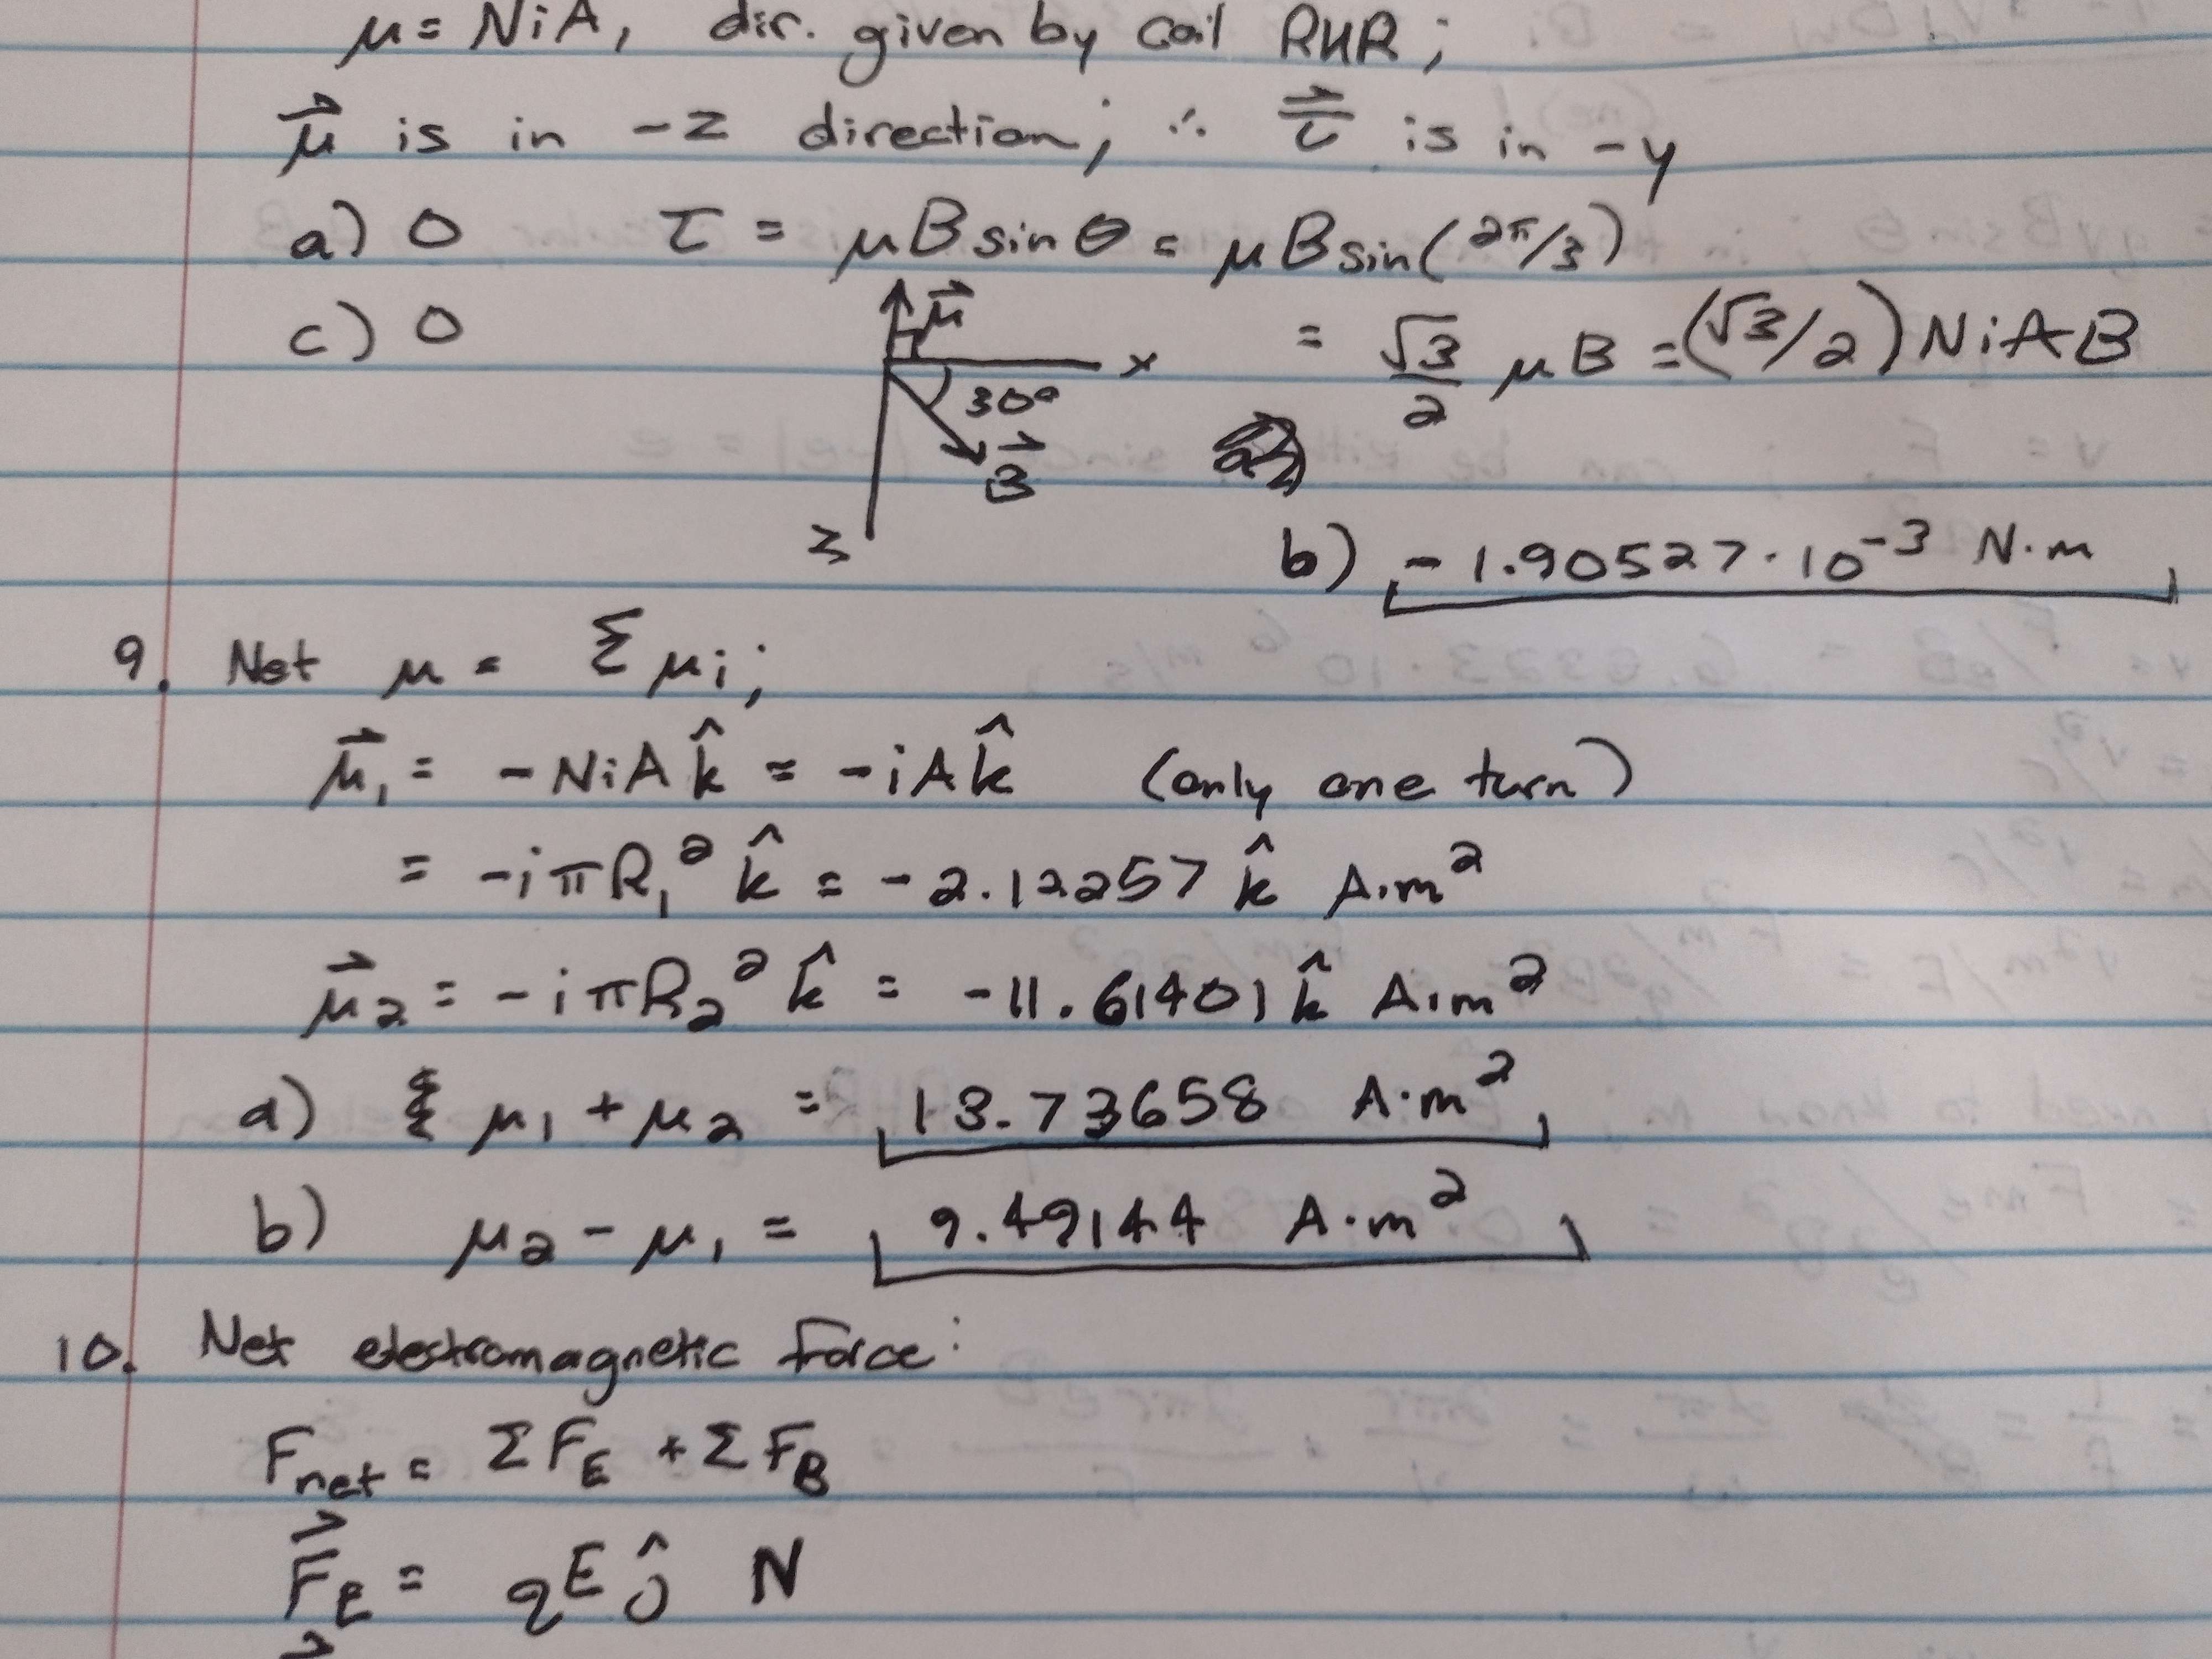 μ = NiA, dir. given by coil RHR;
μ⃗ is in -z direction; ∴ τ⃗ is in -y
a) 0 τ = μBsinθ = μBsin(2π/3)
c) 0 μ⃗ x 30° B⃗ z = √3/2 μB = (√3/2)NiAB
b) -1.90527·10⁻³ N·m
9. Net μ = Σμi;
μ⃗₁ = -NiA k̂ = -iA k̂ (only one turn)
= -iπR₁² k̂ = -2.12257 k̂ A·m²
μ⃗₂ = -iπR₂² k̂ = -11.61401 k̂ A·m²
a) Σ μ₁ + μ₂ = 13.73658 A·m²
b) μ₂ - μ₁ = 9.49144 A·m²
10. Net electromagnetic force:
Fnet = ΣF_E + ΣF_B
F⃗_E = qE ĵ N